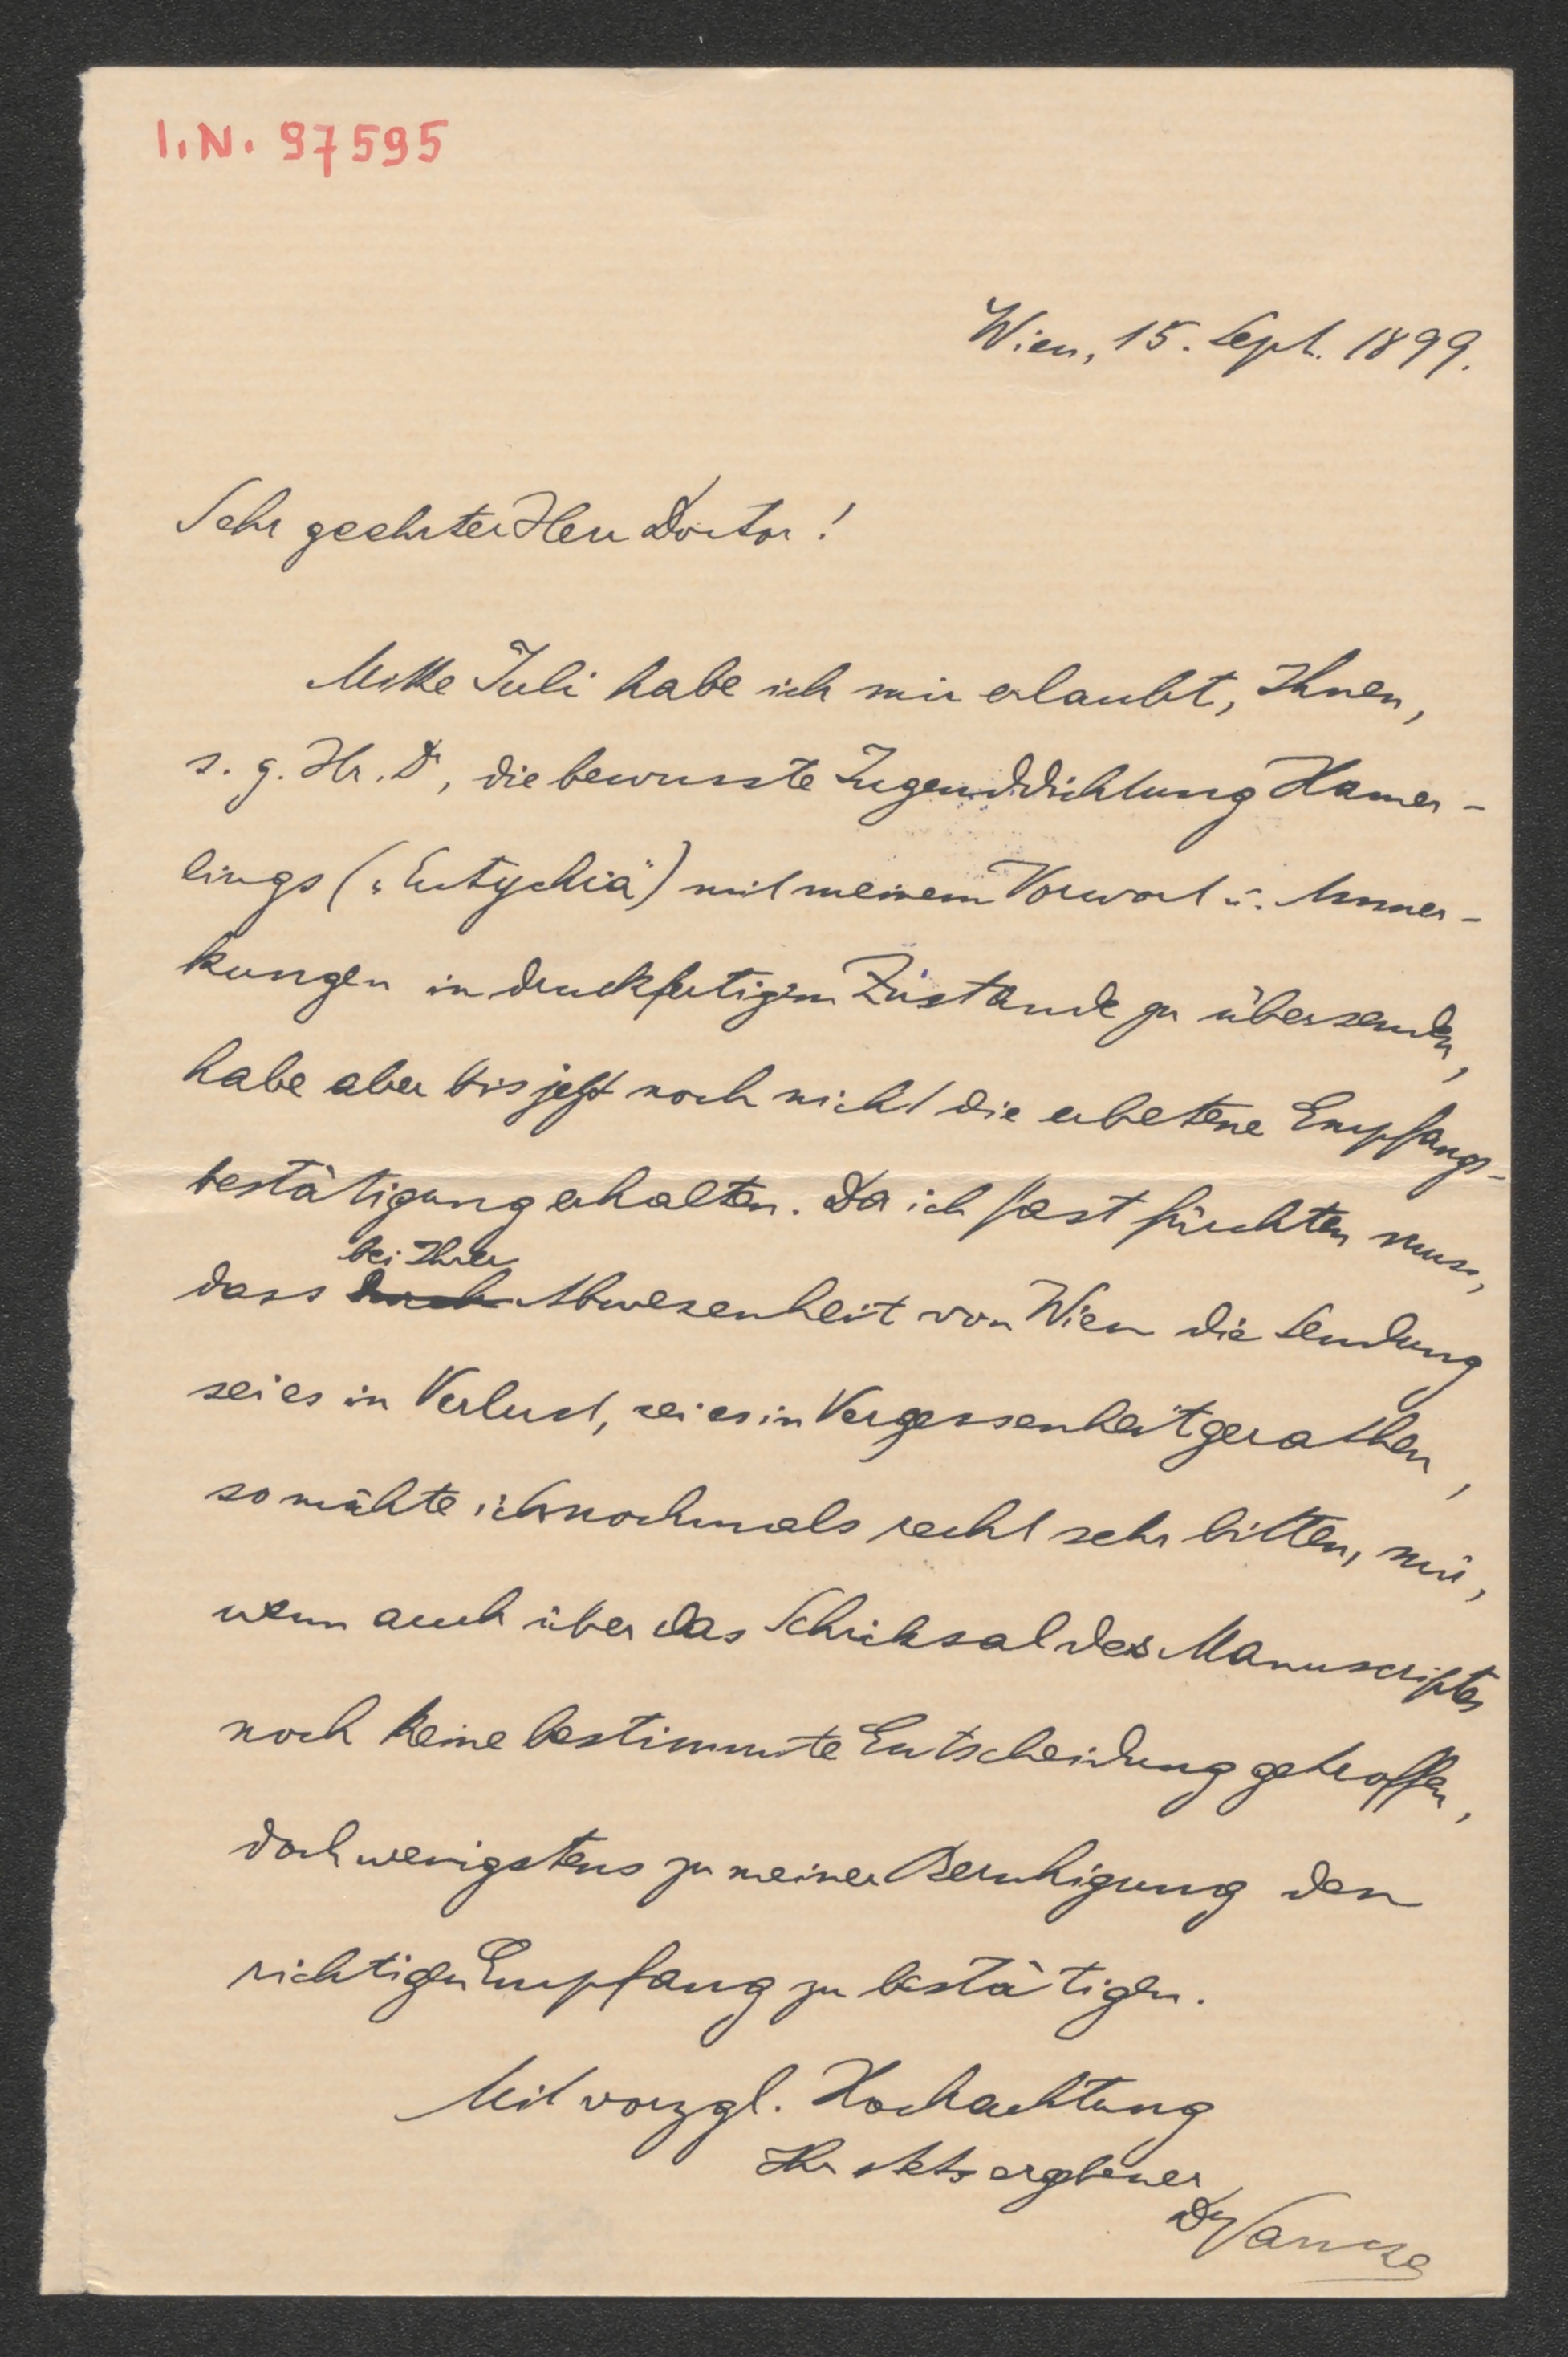 I.N. 97595
Wien, 15. Sept. 1899.
Sehr geehrter Herr Doctor!
Mitte Juli habe ich mir erlaubt, Ihnen,
s. g. Hr. Dr, die bewusste Jugenddichtung Hamer-
lings („Eutychia") mit meinem Vorwort u. Anmer-
kungen in druckfertigem Zustande zu übersenden,
habe aber bis jetzt noch nicht die erbetene Empfangs-
bestätigung erhalten. Da ich fast fürchten muss,
bei Ihrer
dass durch Abwesenheit von Wien die Sendung
sei es in Verlust, sei es in Vergessenheit gerathen,
so möchte ich nochmals recht sehr bitten, mir,
wenn auch über das Schicksal des Manuscriptes
noch keine bestimmte Entscheidung getroffen,
doch wenigstens zu meiner Beruhigung den
richtigen Empfang zu bestätigen.
Mit vorzgl. Hochachtung
Ihr stets ergebener
Dr Vancsa